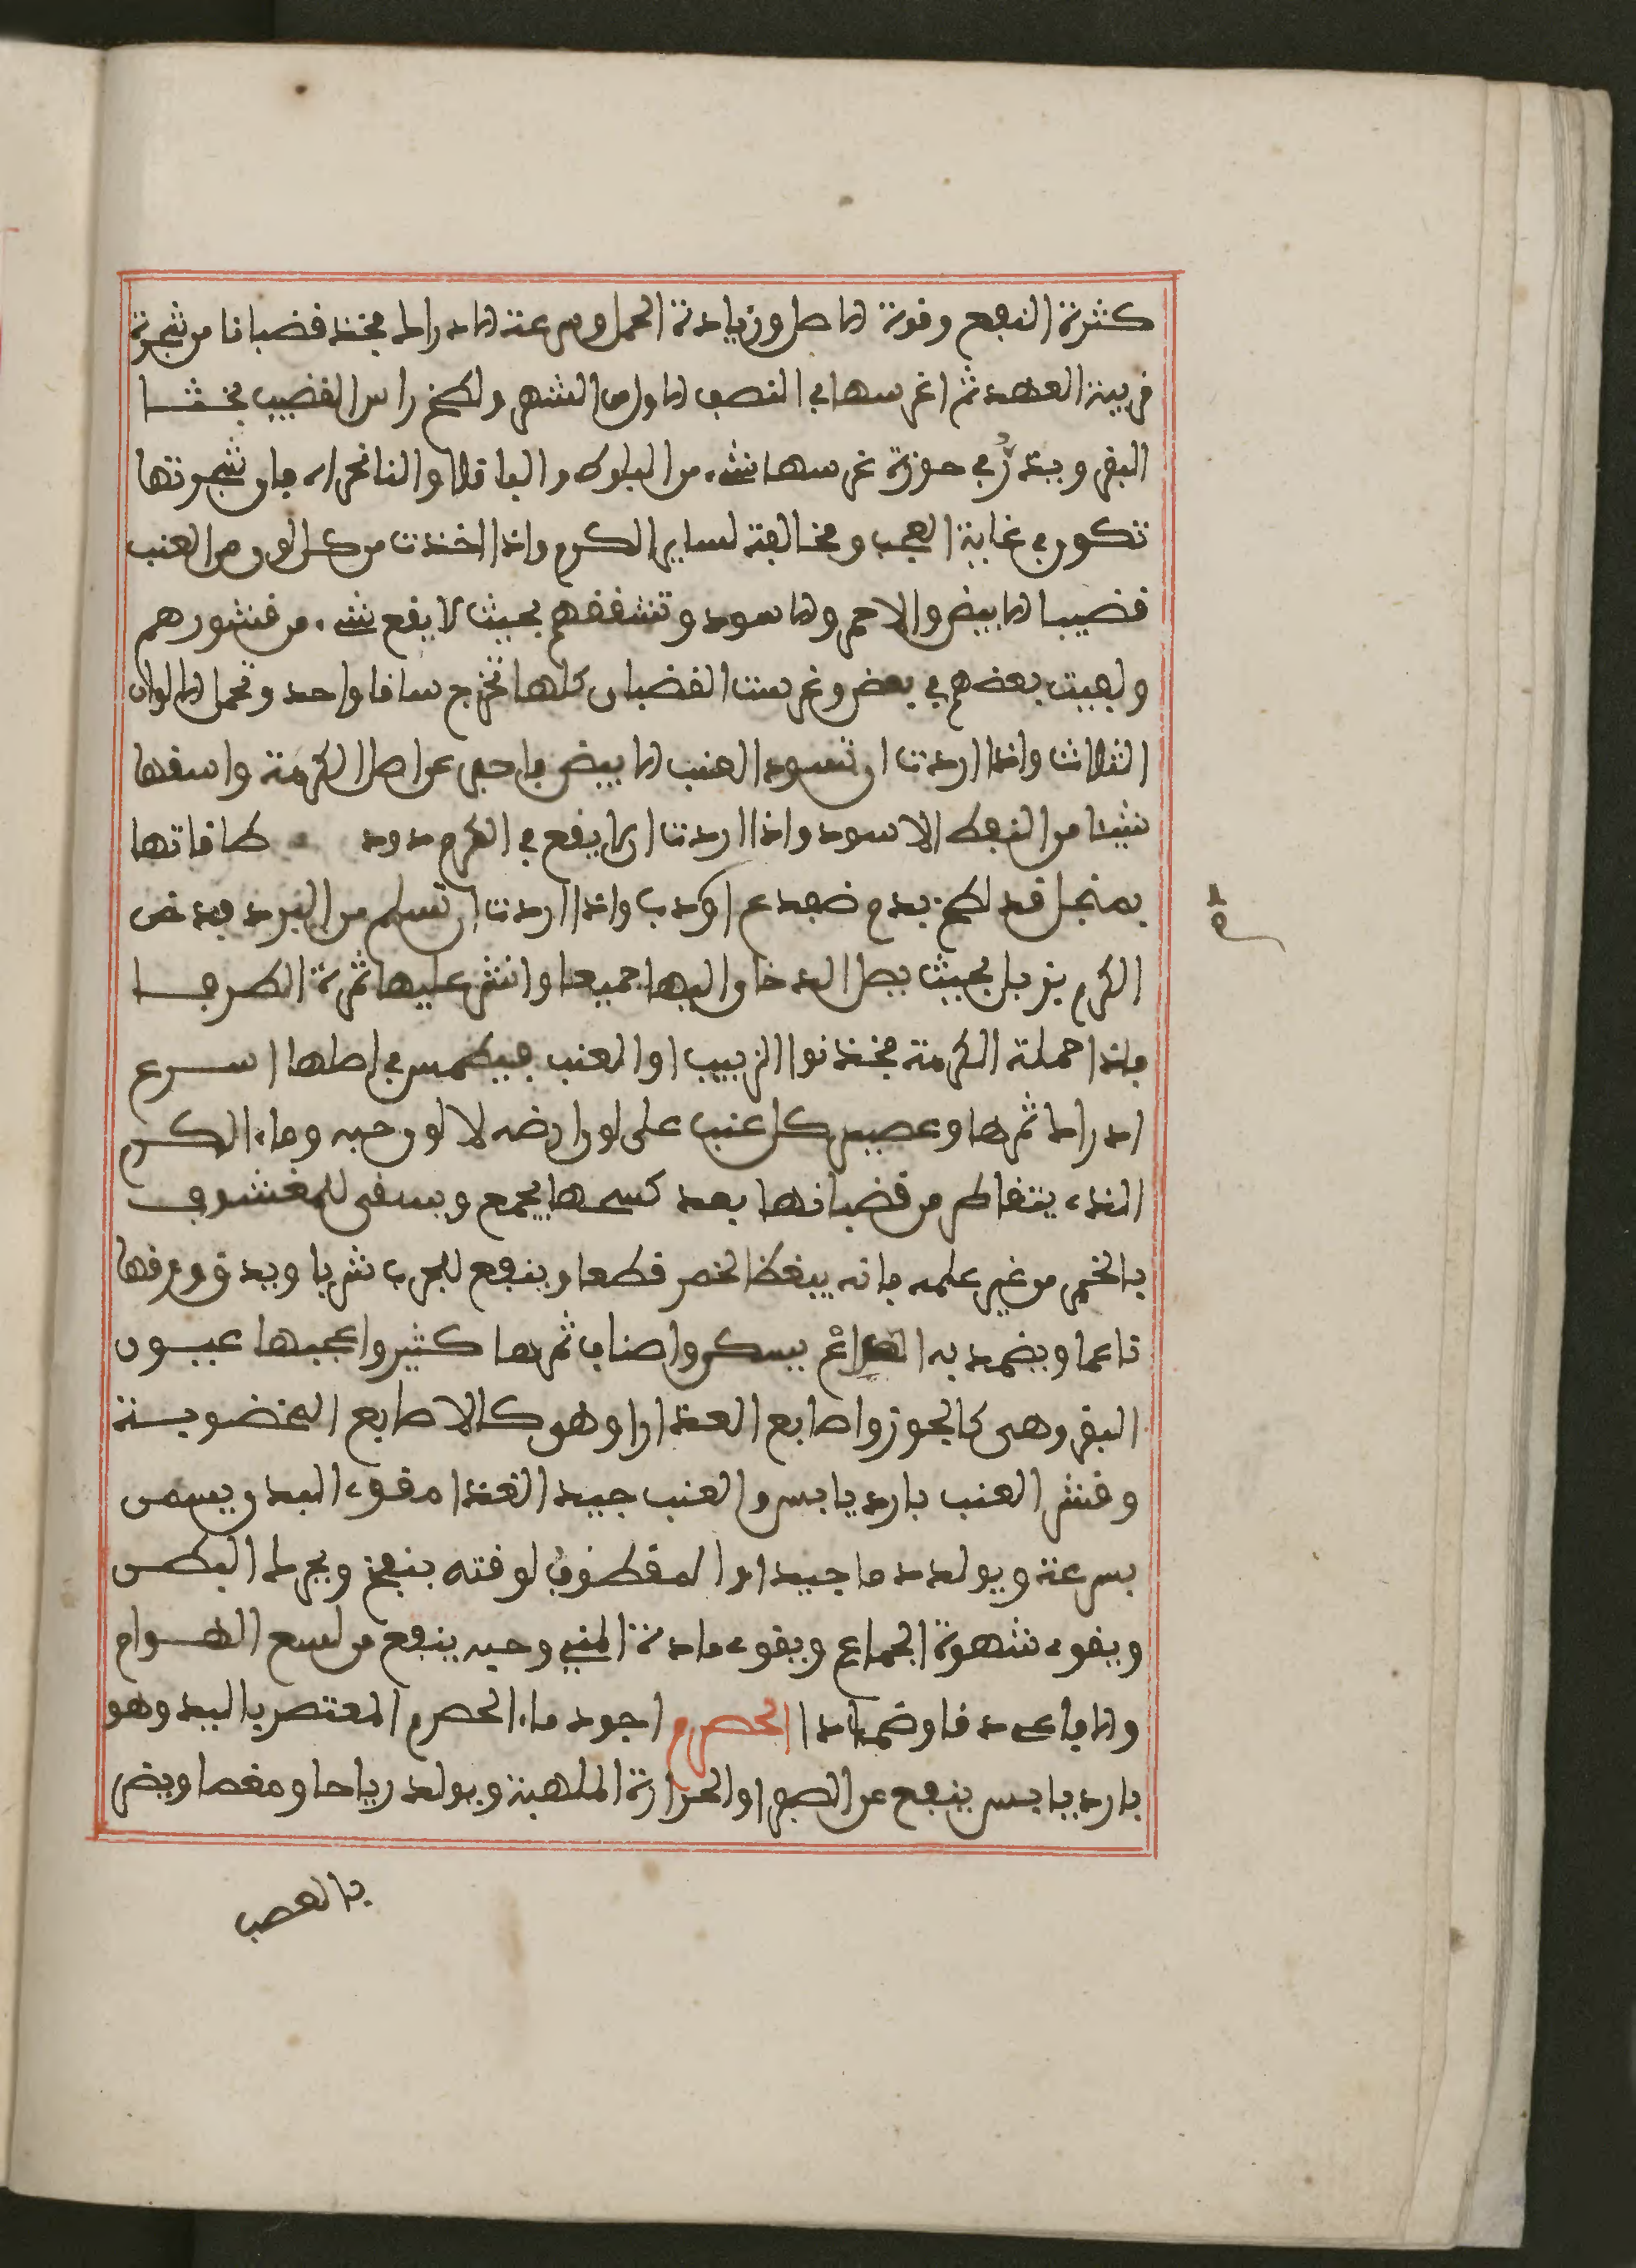 كثرة النفع وقوة الاصل وزيادة الحمل وسرعة الادراك فخذ قضبانا من شجرة
قريبة العهد ثم اغرسها في النصف الاول من الشهر ولطخ راس القضيب بخثا
البقر وبذر في حفرة غرسها شيء من البلوط والباقلا والنانخواه فان شجرتها
تكون في غاية العجب ومخالفة لساير الكرم واذا اخذت من كل لون من العنب
قضيبا الابيض والاحمر والاسود وتشققهم بحيث لا يقع شيء من قشورهم
ولفيت بعضهم في بعض وغرست القضبان كلها تخرج ساقا واحد وتحمل الالوان
الثلاث واذا اردت ان تسود العنب الابيض فاحفر عن اصل الكرمة واسقها
شيئا من النفط الاسود واذا اردت ان لا يقع في الكرم دود كافاتها
بمنجل قد لطخ بدم ضفدع اودب واذا اردت ان تسلم من البرد فدخن
الكرم بزبل بحيث يصل الدخان اليها جميعا وانثر عليها ثمرة الطرفا
فاذا حملة الكرمة فخذ نوا الزبيب او العنب فيطمس في اصلها اسرع
ادراك ثمرها وعصير كل عنب على لون ارضه لا لون حبه وماء الكرم
الذي يتقاطر من قضبانها بعد كسحها يجمع ويسقى للمغشوف
بالخمر من غير علمه فانه يبغض الخمر قطعا وينفع للجرب شربا ويدق ورقها
ناعما ويضمد به الصداع يسكن واصناف ثمرها كثير واعجبها عيون
البقر وهي كالجوز واصابع العذارا وهي كالاصابع المخضوبة
وقشر العنب بارد يابس والعنب جيد الغذا مقوي البدن يسمن
بسرعة ويولد دما جيدا والمقطوف لوقته ينفخ ويحرك البطن
ويقوي شهوة الجماع ويقوي مادة المني وحبه ينفع من لسع الهوام
والافاعي دقا وضمادا الحصرم اجود ماء الحصرم المعتصر باليد وهو
بارد يابس ينفع من الصفرا والحرارة الملهبة ويولد رياحا ومغصا ويضر
بالعصب